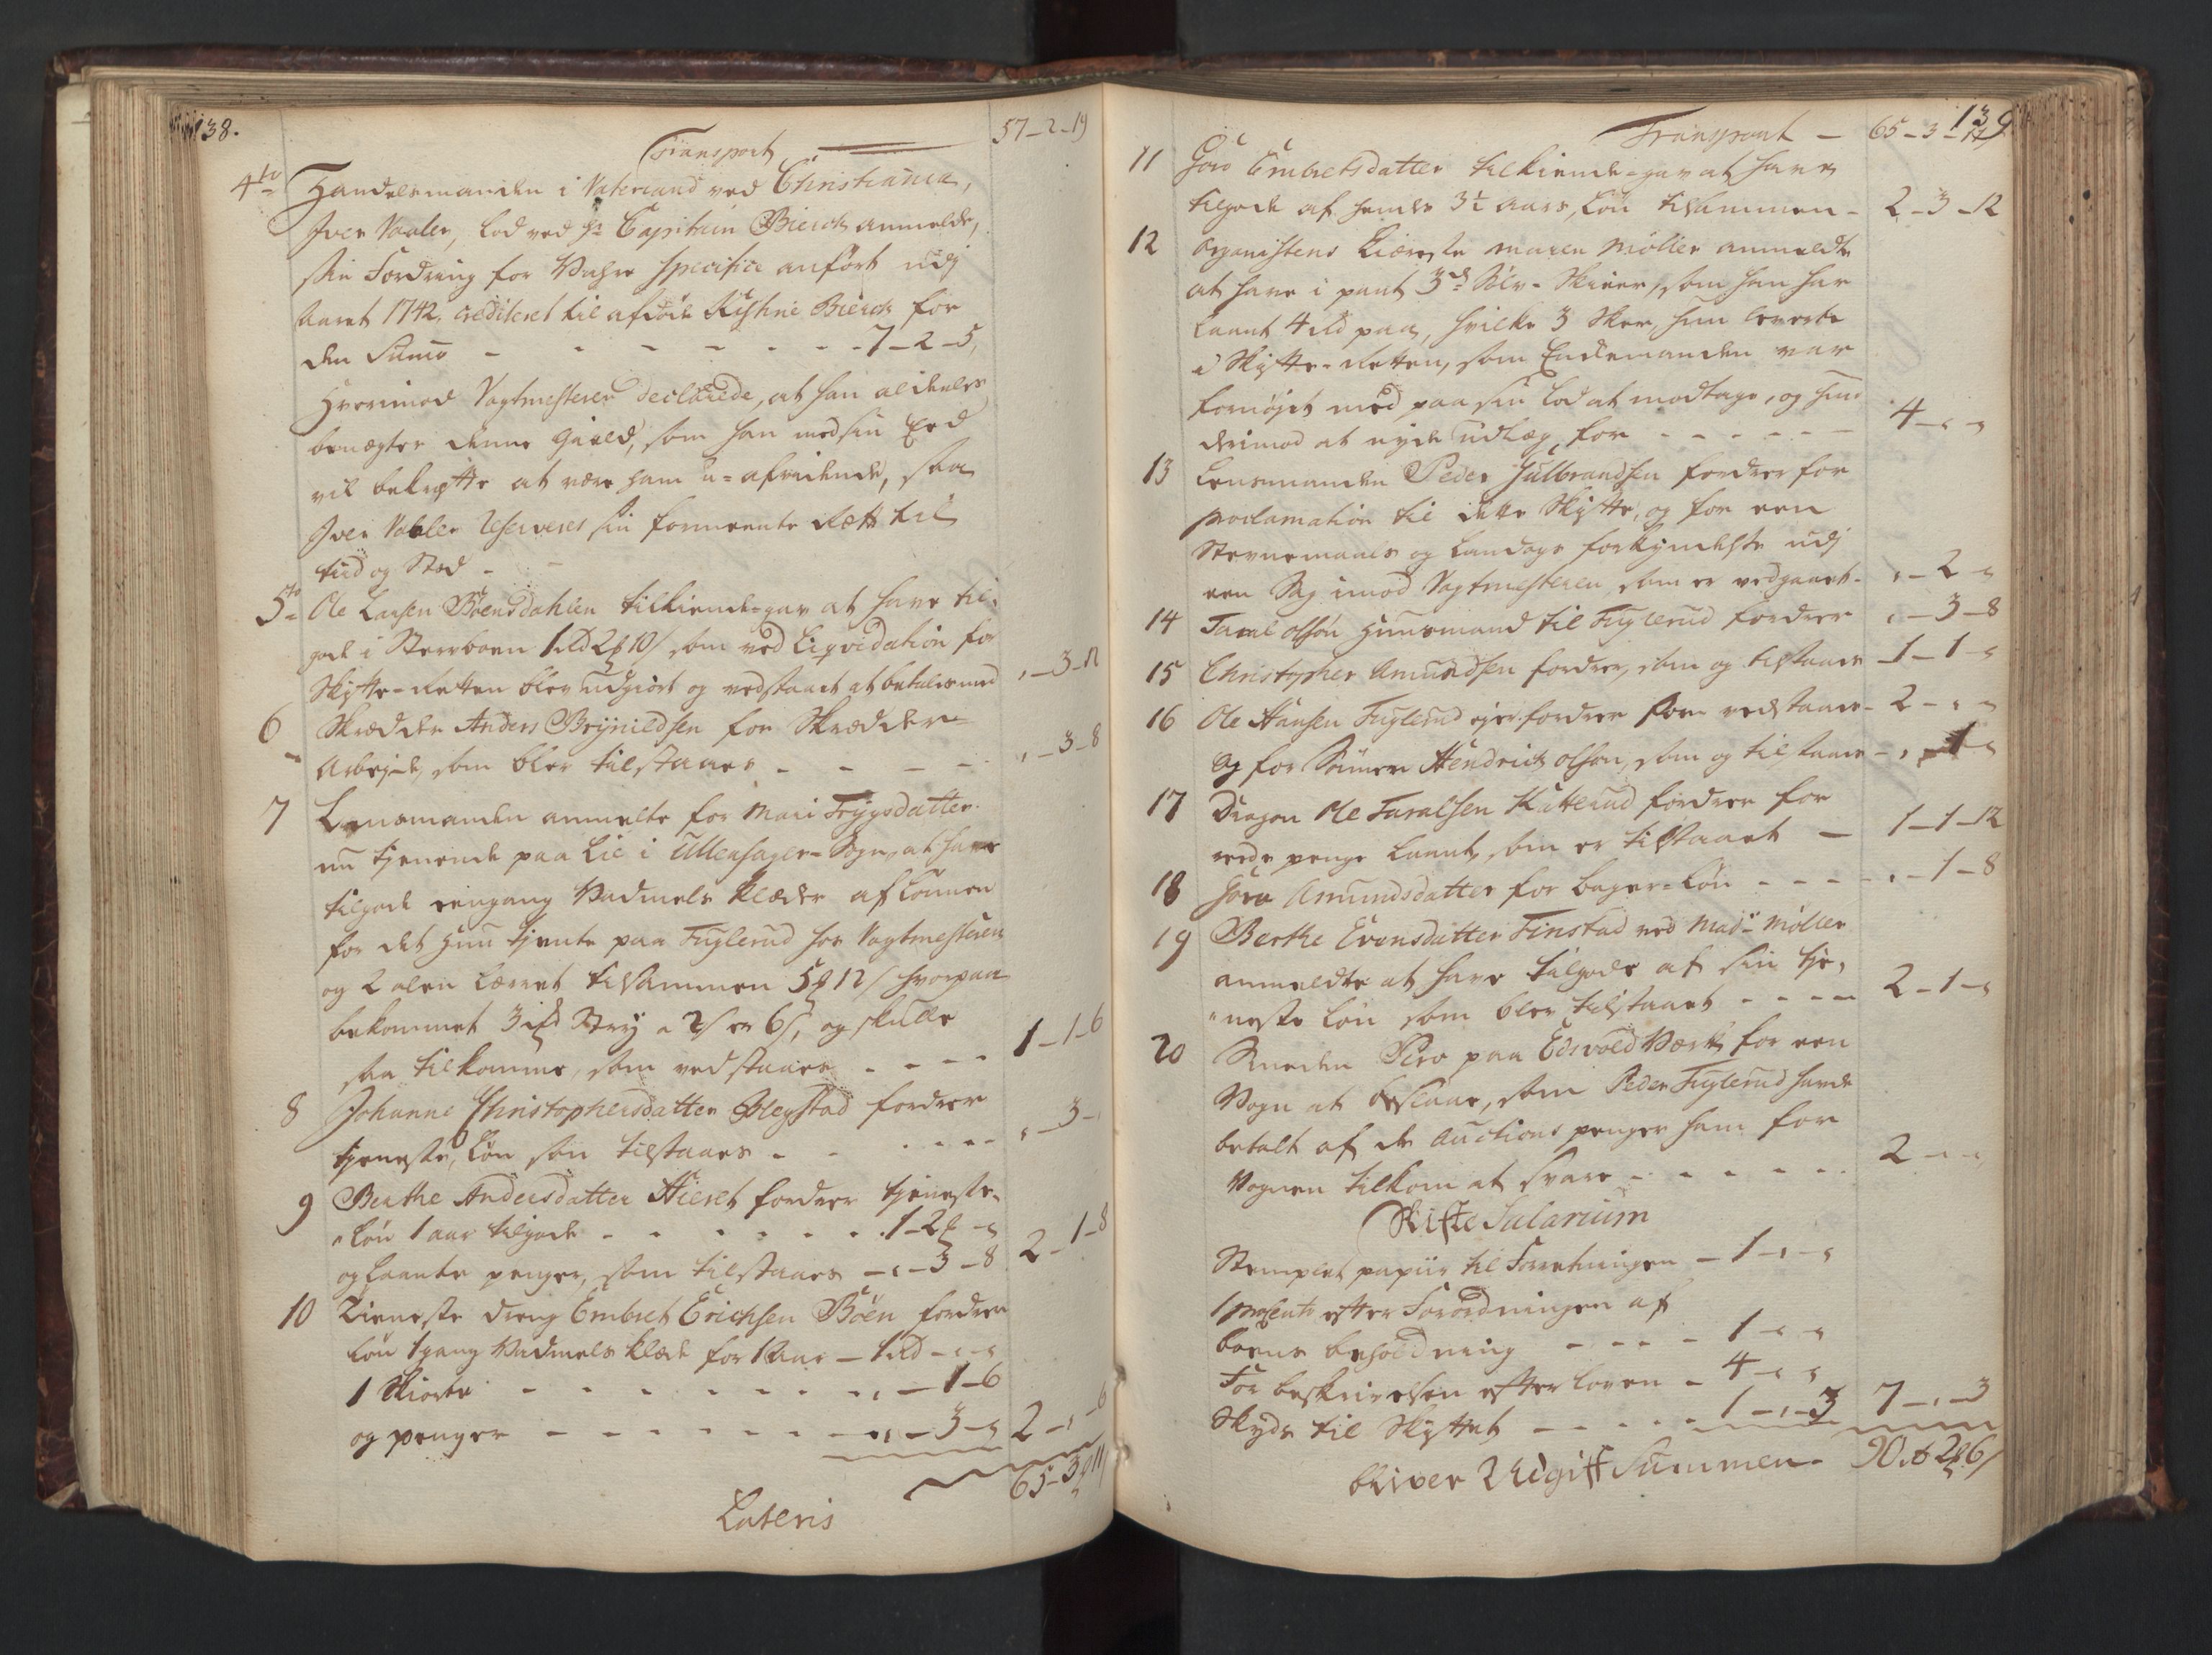 138.
Transport 57-2-19
4to Handelsmanden i Vaterland ved Christiania,
Iver Vaaler, lod ved Hr Capitain Bierch anmelde,
sin Fordring for Vahre Specifice anført udj
Aaret 1742. crediteret til afdøde Kistine Bierch for
den Summa - - - - - - 7-2-5,
Hvorimod Vagtmesteren declarede, at han aldeeles
benægter denne Gield, som han med sin Eed
vil bekræfte at være ham u-afvidende, saa
Iver Vaaler reserveres sin formeente Rætt til
tiid og Sted -
5te Ole Larsen Bøensdahlen tilkiende-gav at have til-
gode i Sterboen 1 rd 2 ℔ 10 s som ved Liqvidation for
Skifte-Retten blev udgiort og vedstaaet at betales med , -3-12
6 Skredder Anders Brÿnildsen for Skrædder-
Arbejde, som blev tilstaaet - - - - , -3-8
7 Lensmanden anmelte for Mari Trÿgsdatter
nu tienende paa Lie i Ullensager-Sogn, at have
tilgode eengang Vadmels klæder af Lønnen
for det Hun tiente paa Fuglerud hos Vagtmesteren
og 2 alen Lærret tilsammen 5 ℔ 12 s hvorpaa
bekommet 3 ℔d Stry a 2 s er 6 s, og skulle
saa tilkomme, som vedstaaes - - - - 1-1-6
8 Johanne Christophersdatter Blegstad fordrer
tieneste, Løn som tilstaaes - - - - - , -3-,
9 Berthe Andersdatter Hieret fordrer tieneste-
Løn 1 aar tilgode - - - - - - 1-2 ℔ - s
og laante penger, som tilstaaes - , -3-8 2-1-8
10 Tieneste dreng Embret Erichsen Bøen fordrer
Løn 1 gang Vadmels klæde for 1 Aar - 1 rd - , - s
1 Skiorte - - - - - - - - , -1-6
og penger - - - - - - - - , -3- s 2-,-6
Lateris 65-3 ℔ 11
139
Transport - 65-3-11
11 Goro Embretsdatter tilkiende-gav at have
tilgode af hendes 3½ Aars, Løn tilsammen - 2-3-12
12 Organistens Kiæreste Maren Møller anmeldte
at have i pant 3de Sølv-Skieer, som hun har
laant 4 rd paa, hvilke 3 Skeer, hun leverte
i Skifte-Retten, som Enkemanden var
fornøjet med paa sin Lod at modtage, og hun
derimod at nyde udlæg, for - - - - - 4-,-,
13 Lensmanden Peder Gulbrandsen fordrer for
proclamation til dette Skifte, og for een
Stevnemaals og Landags forkyndelse udj
een Sag imod Vagtmesteren, som er vedgaaet - , -2- s
14 Taral Olsøn Huusmand til Fuglerud fordrer , -3-8
15 Christopher Amundsen fordrer, som og tilstaaes - 1-1- s
16 Ole Hansen Fuglerud ejer fordrer som vedstaaes - 2-,-,
og for Sønnen Hendrich Olsøn, som og tilstaaes - , -1- s
17 Dragon Ole Taralsen Kutterud fordrer for
reede penge laant, som er tilstaaet - 1-1-12
18 Goro Amundsdatter for bager-Løn - - - , -1-8
19 Berthe Evensdatter Finstad ved Mad: Møller
anmeldte at have tilgode af sin tie-
neste Løn som blev tilstaaet - - - - 2-1- s
20 Smeden Pero paa Edsvold Værk for een
Vogn at beslaae, som Peder Fuglerud havde
betalt af de Auctions penger ham for
Vognen tilkom at svare - - - - - 2-,-,
Skifte Salarium
Stemplet papiir til Forretningen - 1-,- s
1 procento efter Forordningen af
boens beholdning - - - - 1-,- s
For beskrivelsen efter loven - 4-,- s
Skyds til Skiftet - - - - - 1-,-3 7-,-3
bliver Udgift Summen - 90 rd 2 ℔ 6 s